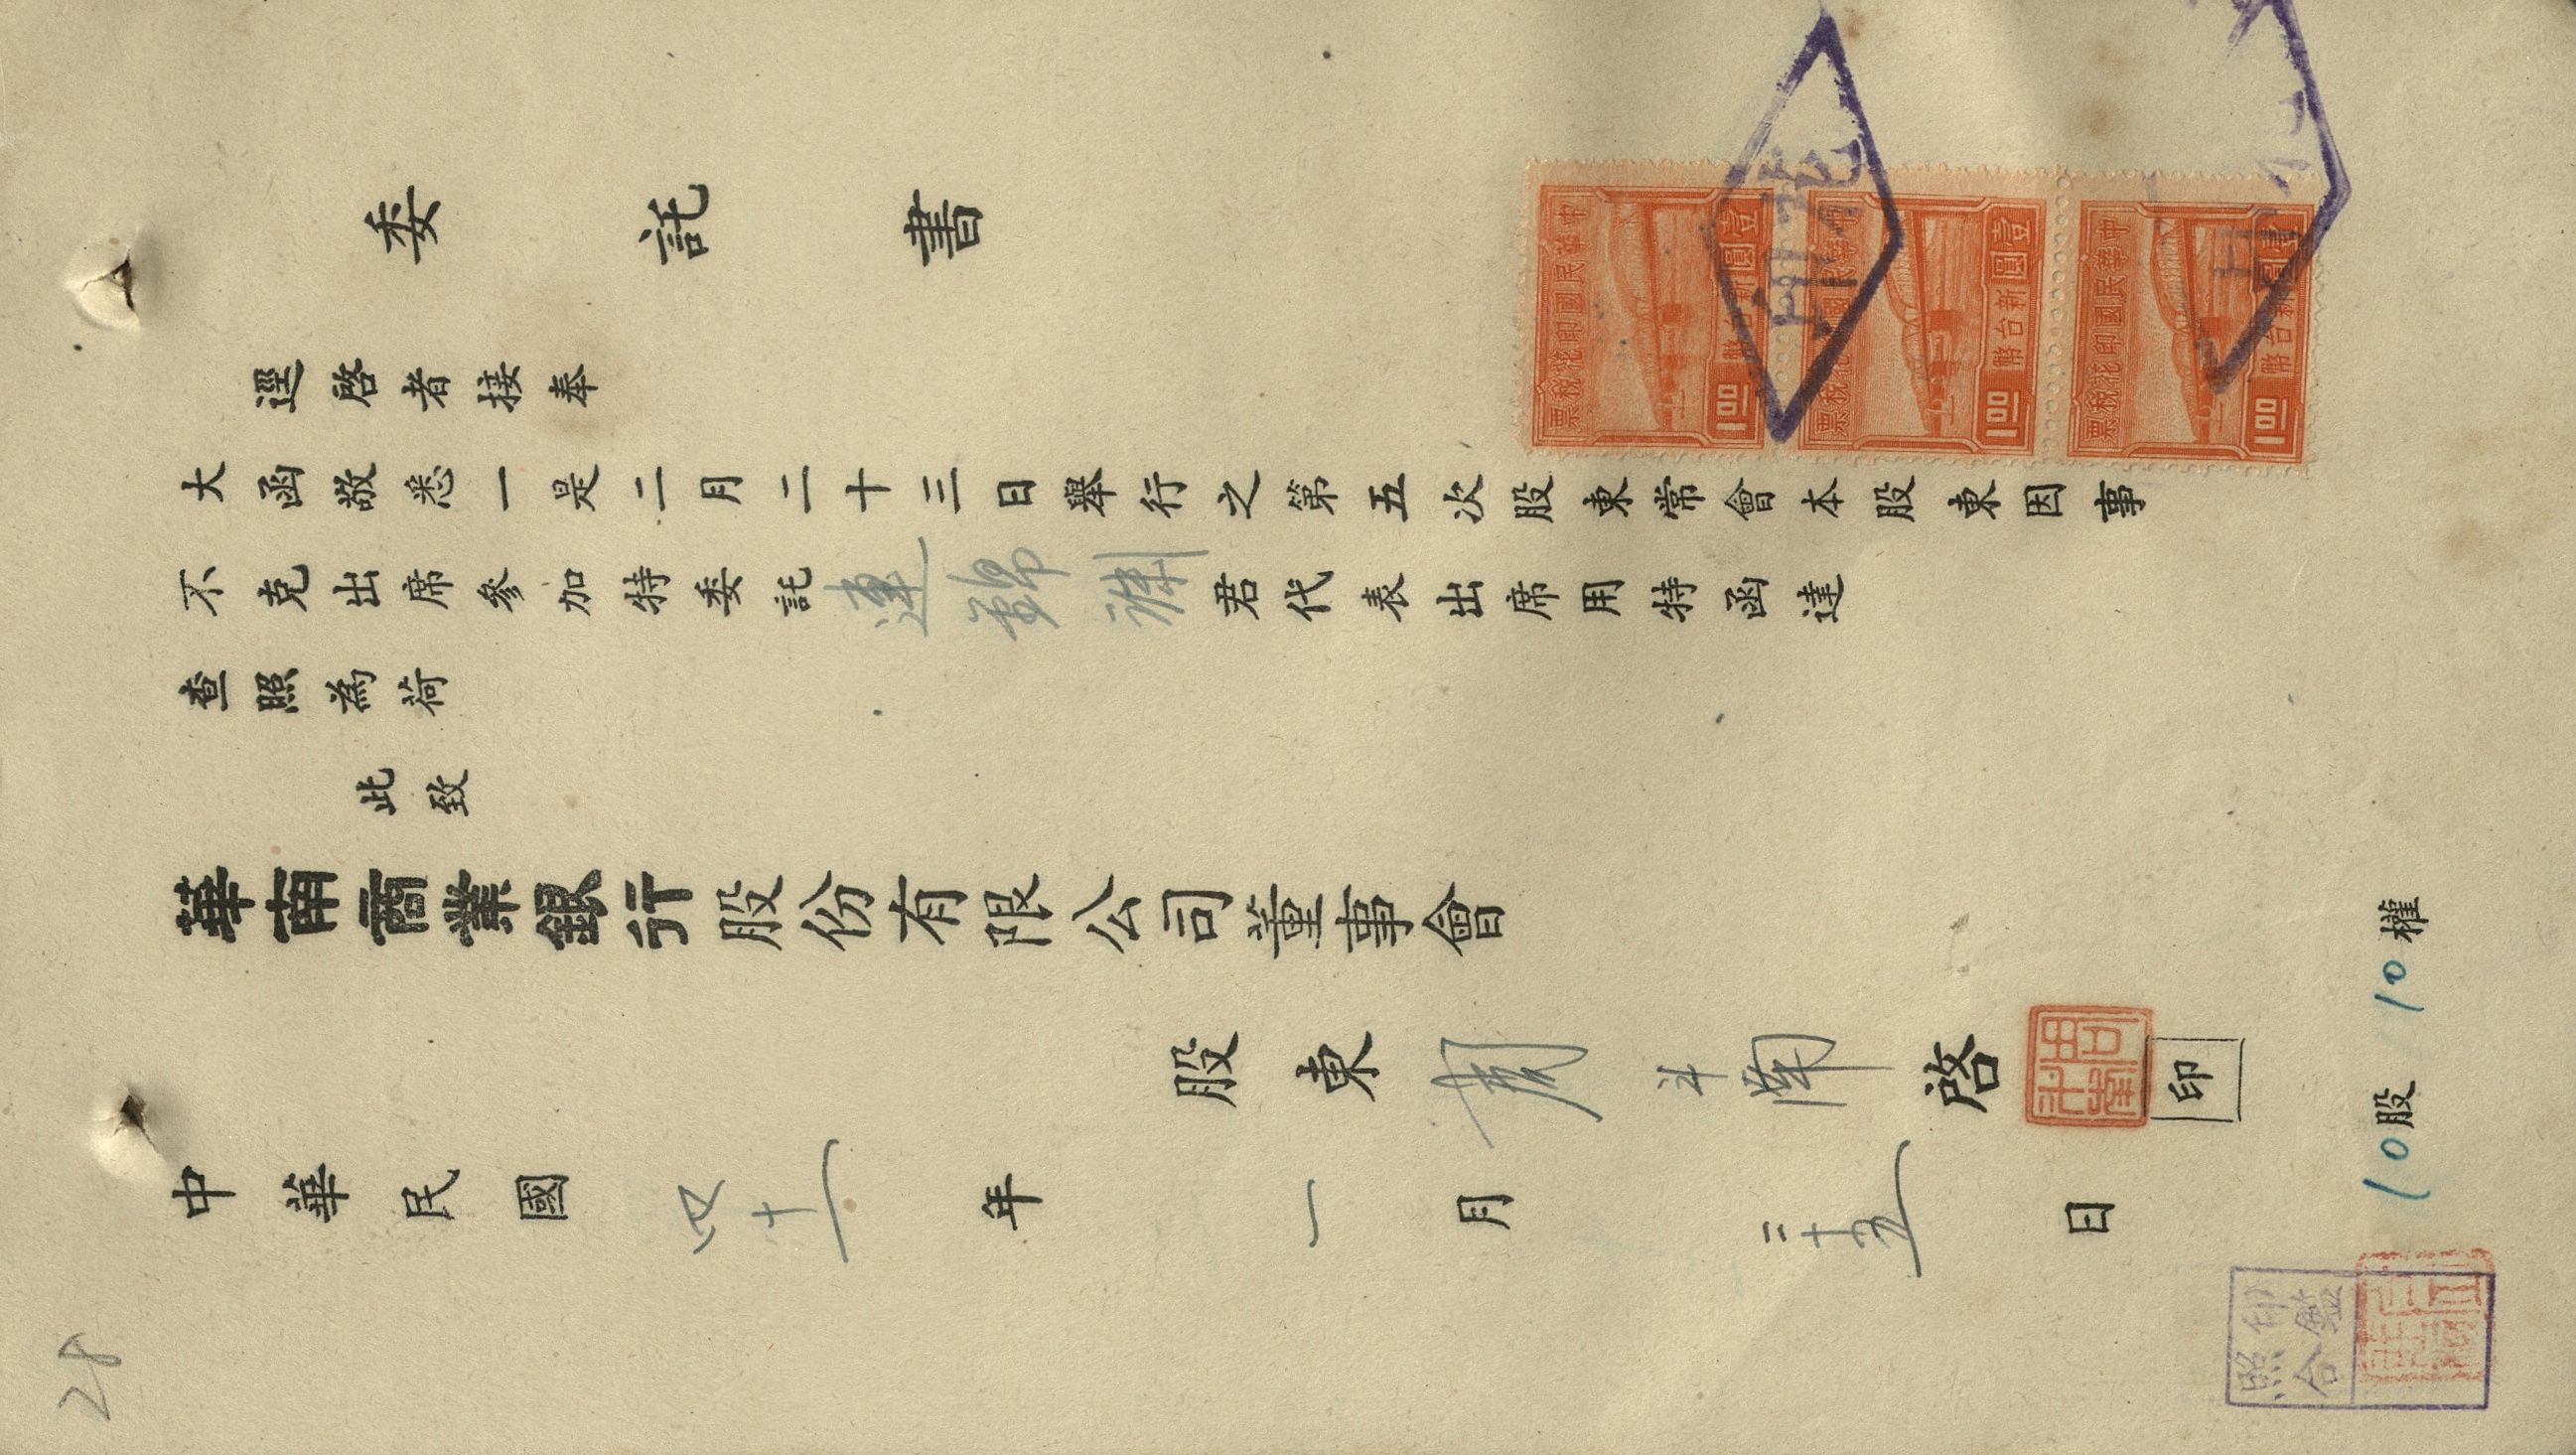 委託書
逕啓者接奉
大函敬悉一是二月二十三日舉行之第五次股東常會本股東因事
不克出席參加特委託連錦 君代表出席用特函達
查照為荷
此致
華南商業銀行股份有限公司董事會
股東周斗南啓 印
中華民國四十一年一月二十五日
10股 10權
印鑑
照合
28
中華民國印花稅票
壹圓
新台幣
1.00
中華民國印花稅票
壹圓
新台幣
1.00
中華民國印花稅票
壹圓
新台幣
1.00